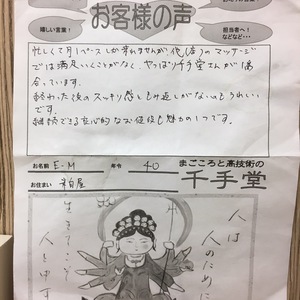 お客様の声
嬉しい言葉！
担当者へ！
などなど・・・
忙しくて月1ペースしか来れませんが他店のマッサージ
では満足いくことがなく、やっぱり千手堂さんが1番
合っています。
終わった後のスッキリ感ともみ返しがないのもうれしい
です。
継続できる良心的なお値段も魅力の1つです。
お名前 E-M 年令 40
お住まい
まごころと高技術の
千手堂
人は
人のために
生きてこそ
人と申す